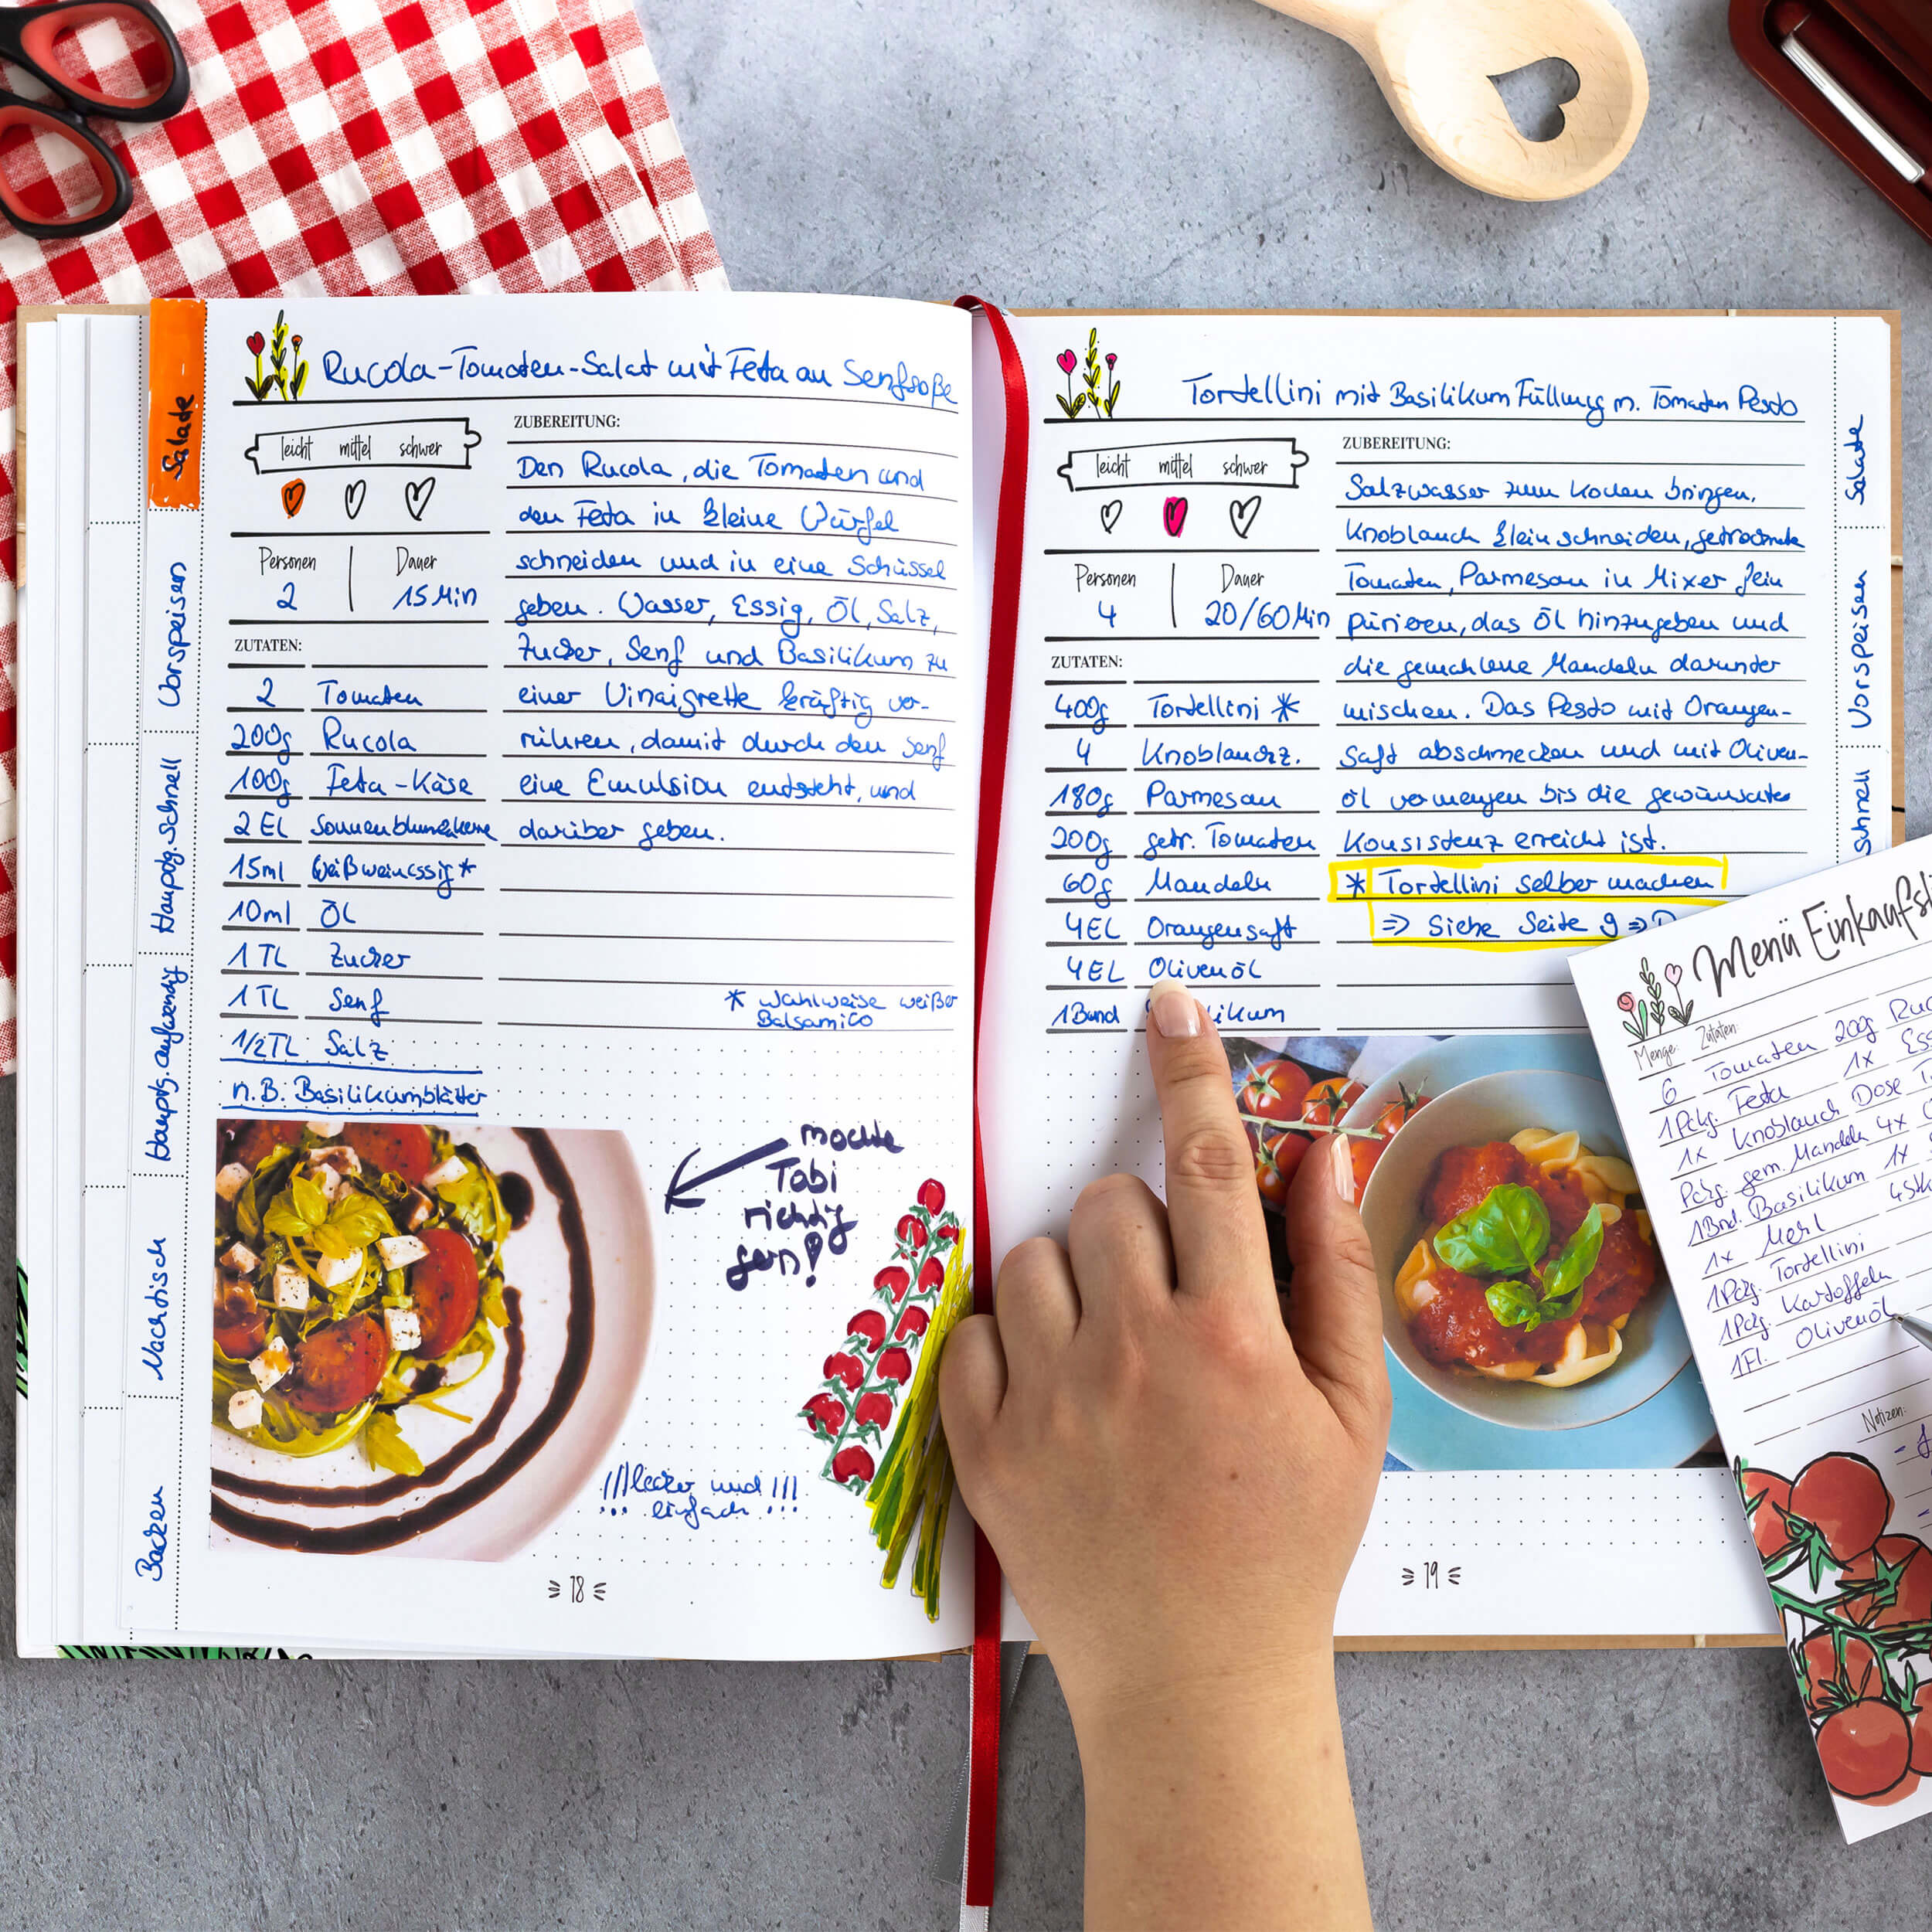 Salate
Vorspeisen
Hauptg. Schnell
Hauptg. aufwendig
Nachtisch
Backen
Rucola-Tomaten-Salat mit Feta an Senfsoße
leicht mittel schwer
Personen Dauer
2 15 Min
ZUTATEN:
2 Tomaten
200g Rucola
100g Feta-Käse
2 EL Sonnenblumenkerne
15ml Weißweinessig*
10ml ÖL
1 TL Zucker
1 TL Senf
1/2TL Salz
n.B. Basilikumblätter
ZUBEREITUNG:
Den Rucola, die Tomaten und
den Feta in kleine Würfel
schneiden und in eine Schüssel
geben. Wasser, Essig, Öl, Salz,
Zucker, Senf und Basilikum zu
einer Vinaigrette kräftig ver-
rühren, damit durch den Senf
eine Emulsion entsteht, und
darüber geben.
* Wahlweise weißer
Balsamico
mochte
Tobi
richtig
gern!
!!! lecker und !!!
einfach
18
Tortellini mit Basilikum Füllung m. Tomaten Pesto
leicht mittel schwer
Personen Dauer
4 20/60 Min
ZUTATEN:
400g Tortellini *
4 Knoblauchz.
180g Parmesan
200g getr. Tomaten
60g Mandeln
4EL Orangensaft
4EL Olivenöl
1Bund
ZUBEREITUNG:
Salzwasser zum Kochen bringen,
Knoblauch klein schneiden, getrocknete
Tomaten, Parmesan in Mixer fein
pürieren, das Öl hinzugeben und
die gemahlene Mandeln darunter
mischen. Das Pesto mit Orangen-
saft abschmecken und mit Oliven-
öl vermengen bis die gewünschte
Konsistenz erreicht ist.
* Tortellini selber machen
⇒ Siehe Seite 9 ⇒
19
Salate
Vorspeisen
Schnell
Menü Einkaufsli
Menge: Zutaten:
6 Tomaten 200g Ruc
1Pckg. Feta 1x Ess
1x Knoblauch Dose
Pckg. gem. Mandeln 4x
1Bnd. Basilikum 1x
1x Mehl 4Stk
1Pckg. Tortellini
1Pckg. Kartoffeln
1Fl. Olivenöl
Notizen: